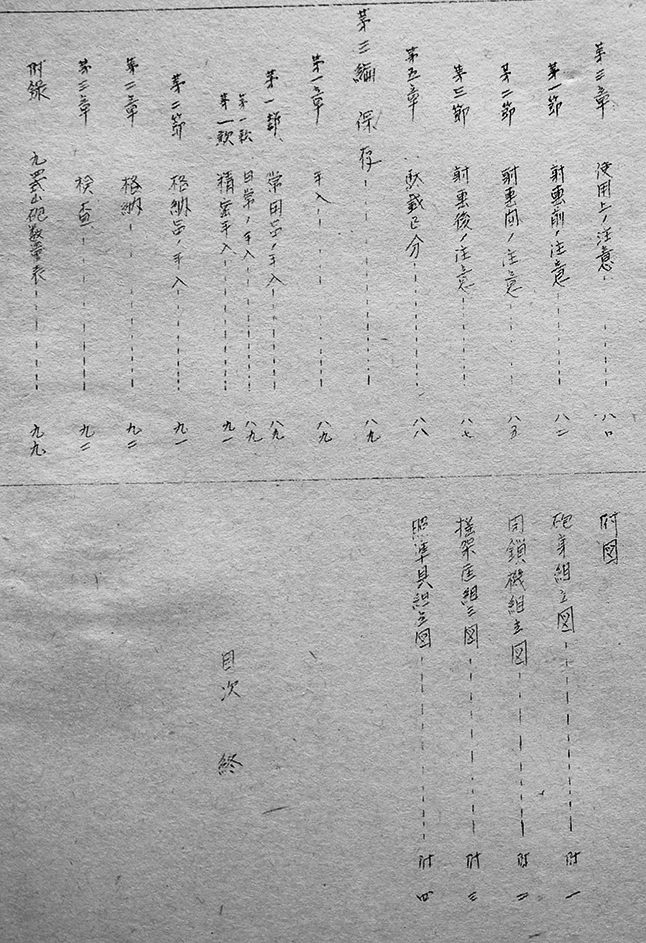 第三章 使用上ノ注意 八〇
第一節 射撃前ノ注意 八二
第二節 射撃間ノ注意 八五
第三節 射撃後ノ注意 八七
第五章 駄載区分 八八
第三編 保存 八九
第一章 手入 八九
第一節 常用品ノ手入 八九
第一款 日常ノ手入 八九
第一款 精密手入 九一
第二節 格納品ノ手入 九一
第二章 格納 九二
第三章 検査 九二
附録 九四式山砲数量表 九九
附図
砲身組立図 附一
閉鎖機組立図 附二
揺架匡組立図 附三
照準具組立図 附四
目次 終